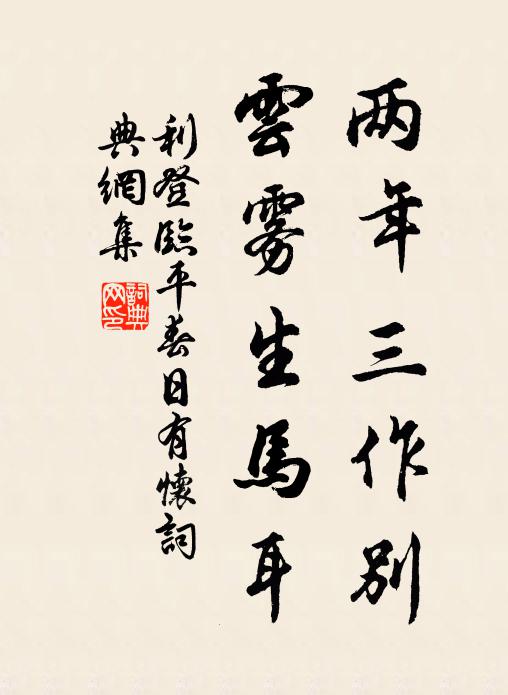 两年三作别
雲雾生馬耳
利登臨平春日有懷詞
典網集
詞典
网印